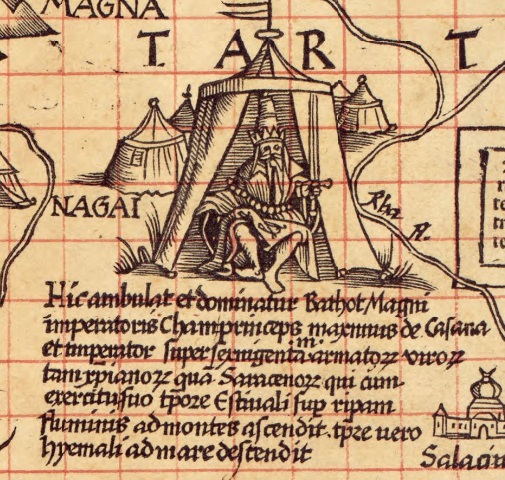 MAGNA
T A R T
NAGAI
Rha
fl.
Hic ambulat et dominatur Bathot Magni
imperatoris Cham princeps maximus de Casana
et imperator super sexingentam̄ armatorꝝ virorꝝ
tam xpianorꝝ quā Saracenorꝝ qui cum
exercitu suo tp̄ore Estiuali sup ripam
fluminis ad montes ascendit. tp̄re uero
hyemali ad mare descendit
Salacin